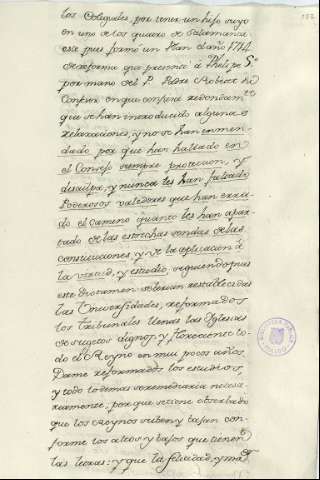 los Colegiales, por tener un hijo suyo
en uno de los quatro de Salamanca:
ese pues formó un Plan el año 1714
de reforma que presentó â Phelipe 5º
por mano del P. Pedro Robinet su
Confesor en que confiesa redondam.te
que se han introducido algunas
relaxaciones, y no se han enmen-
dado por que han hallado en
el Consejo siempre proteccion, y
disculpa, y nunca les han faltado
Poderosos valedores que han erra-
do el camino quanto les han apar-
tado de las estrechas sendas de las
constituciones y de la aplicacion â
la virtud, y estudio, siguiendo pues
este dictamen se verian restablecidas
las Universidades, reformados
los Tribunales llenas las Yglesias
de sugetos dignos, y floreciente to-
do el Reyno en mui pocos años.
Dame reformados los estudios,
y todo lo demas se remediaria necesa-
riamente: por que se tiene observado
que los Reynos suben y bajan con-
forme los altos y bajos que tienen
las letras: y que la felicidad, y mâ